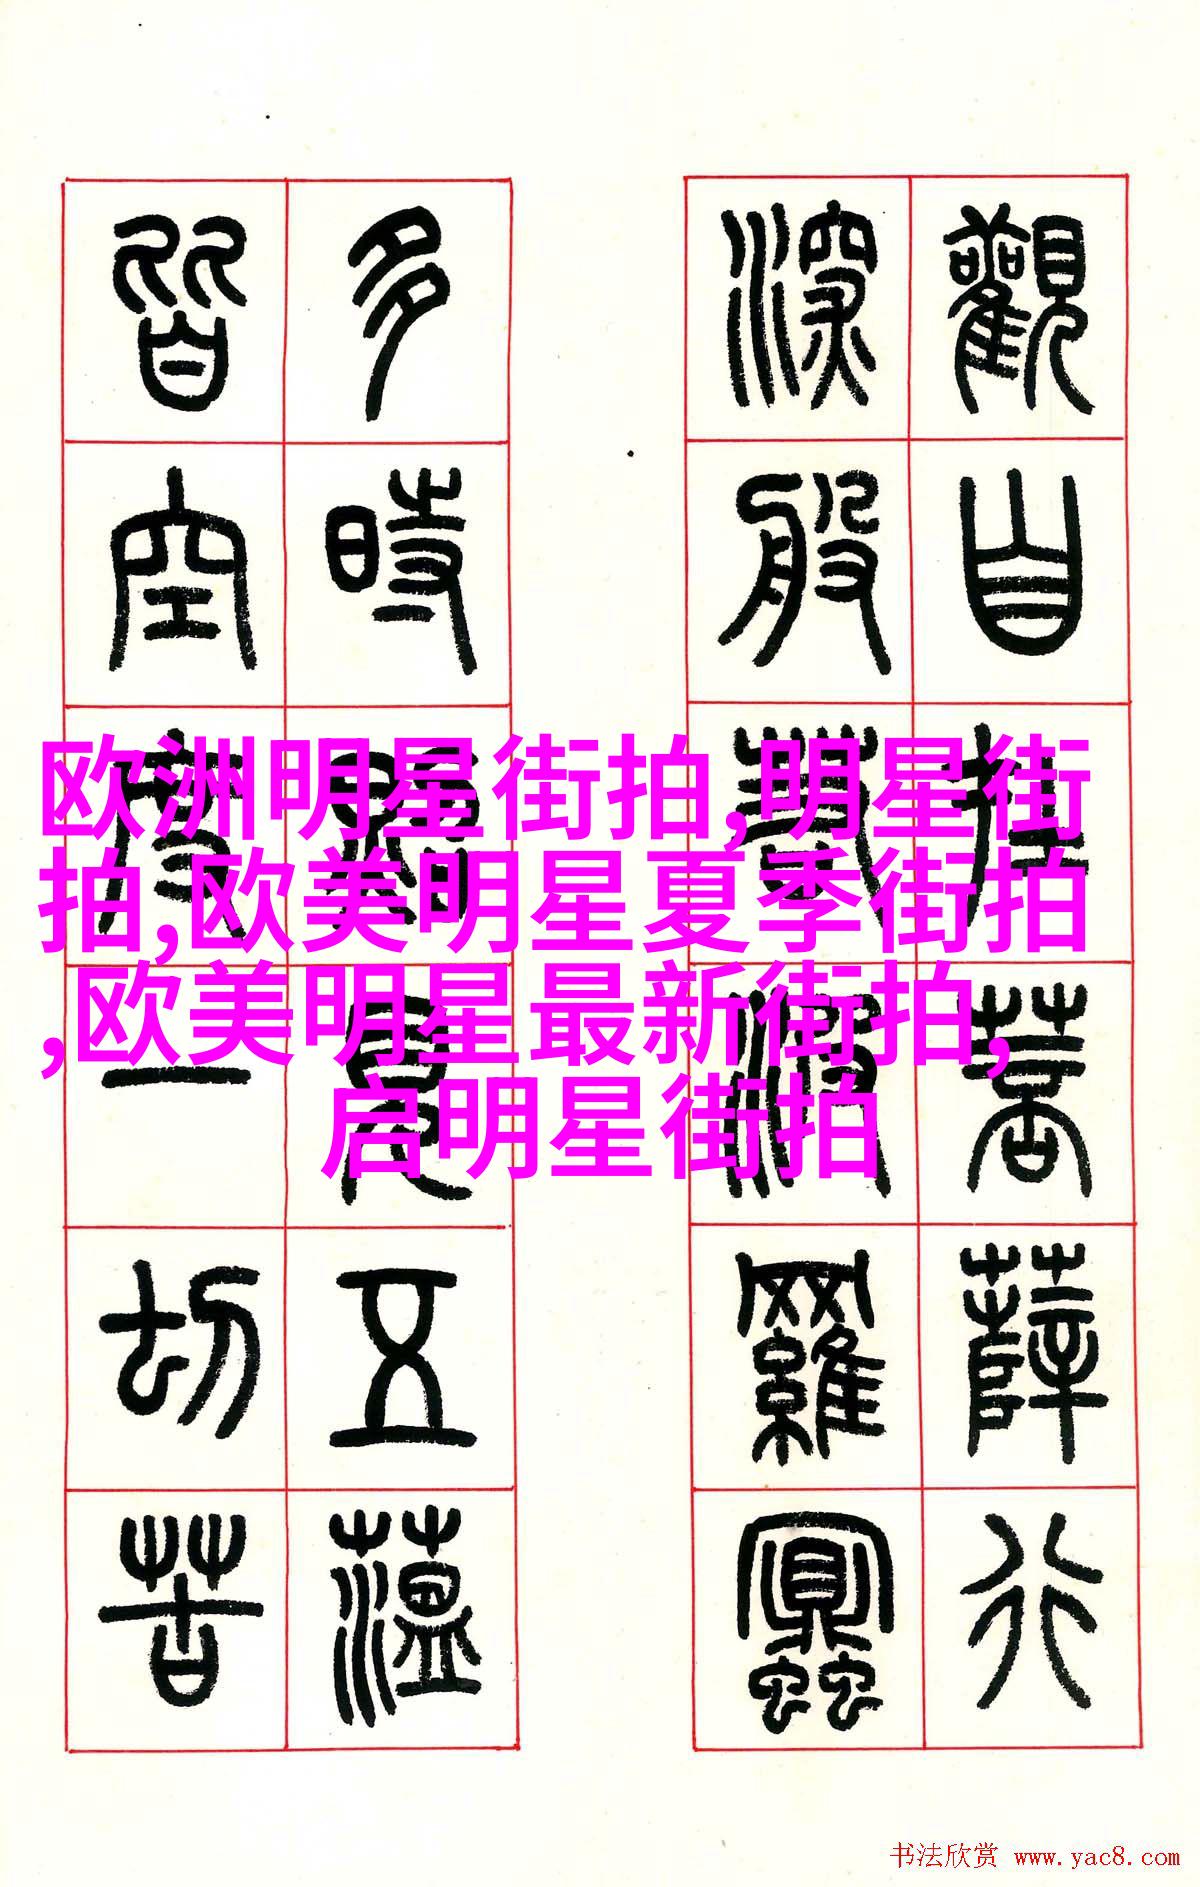 觀自在菩薩行
深般若波羅蜜
多時照見五薀
皆空度一切苦
欧洲明星街拍,明星街
拍,欧美明星夏季街拍
,欧美明星最新街拍,
启明星街拍
书法欣赏 www.yac8.com